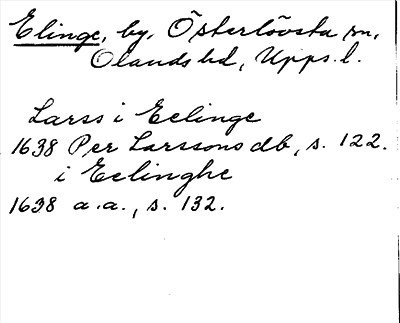 Elinge, by, Österlövsta sn,
Olands hd, Upps. l.
Larss i Eelinge
1638 Per Larssons db, s. 122.
i Eelinghe
1638 a.a., s. 132.